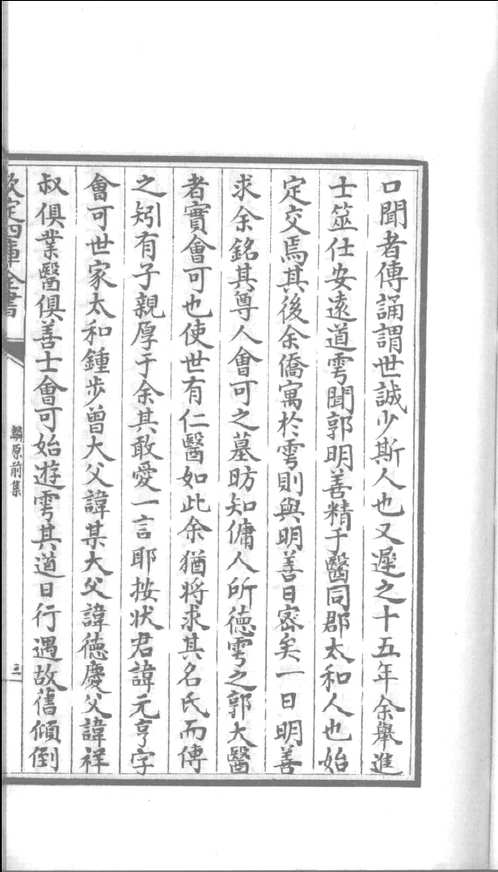 口聞者傳誦謂世誠少斯人也又遲之十五年余舉進
士筮仕安遠道雩聞郭明善精于醫同郡太和人也始
定交焉其後余僑寓於雩則與明善日密矣一日明善
求余銘其尊人會可之墓昉知傭人所德雩之郭大醫
者實會可也使世有仁醫如此余猶將求其名氏而傳
之矧有子親厚于余其敢愛一言耶按狀君諱元亨字
會可世家太和鍾步曾大父諱某大父諱德慶父諱祥
叔俱業醫俱善士會可始遊雩其道日行遇故舊傾倒
欽定四庫全書
原前集